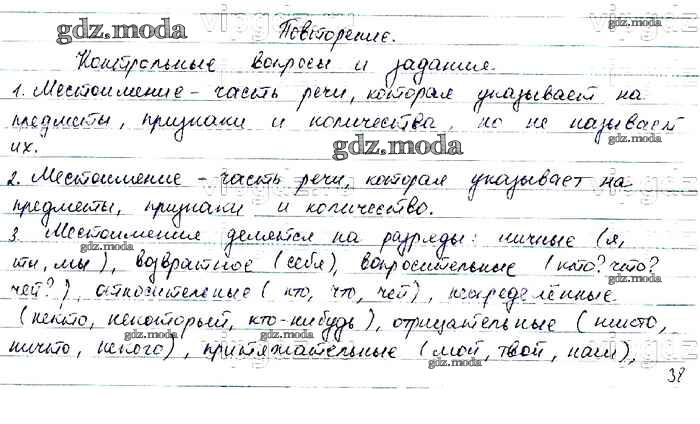 Повторение.
Контрольные вопросы и задания.
1. Местоимение – часть речи, которая указывает на
предметы, признаки и количества, но не называет
их.
2. Местоимение – часть речи, которая указывает на
предметы, признаки и количество.
3. Местоимения делятся на разряды: личные (я,
ты, мы), возвратное (себя), вопросительные (кто? что?
чей?), относительные (кто, что, чей), неопределённые
(некто, некоторый, кто-нибудь), отрицательные (никто,
ничто, некого), притяжательные (мой, твой, наш),
38
gdz.moda
gdz.moda
gdz.moda
gdz.moda
gdz.moda
gdz.moda
gdz.moda
gdz.moda
gdz.moda
gdz.moda